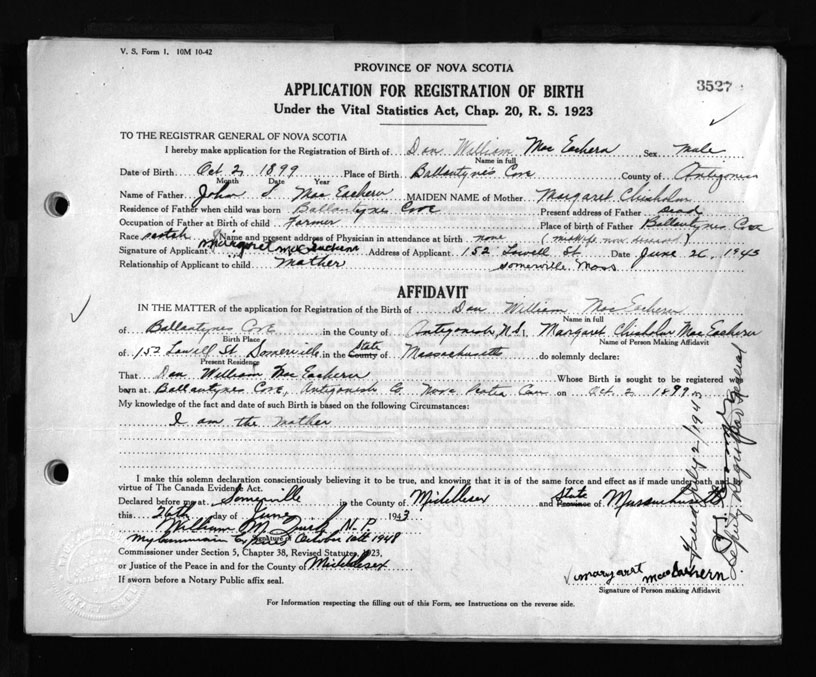 V. S. Form 1. 10M 10-42
PROVINCE OF NOVA SCOTIA
3527
APPLICATION FOR REGISTRATION OF BIRTH
Under the Vital Statistics Act, Chap. 20, R. S. 1923
TO THE REGISTRAR GENERAL OF NOVA SCOTIA
I hereby make application for the Registration of Birth of Dan William Mac Eachern Sex Male
Name in full
Date of Birth Oct 2 1899 Place of Birth Ballantynes Cove County of Antigonish
Month Date Year
Name of Father John Mac Eachern MAIDEN NAME of Mother Margaret Chisholm
Residence of Father when child was born Ballantynes Cove Present address of Father dead
Occupation of Father at Birth of child Farmer Place of birth of Father Ballantynes Cove
Race Name and present address of Physician in attendance at birth none (midwife now deceased)
Signature of Applicant Margaret MacEachern Address of Applicant 152 Lowell St Date June 26, 1943
Relationship of Applicant to child Mother Somerville Mass
AFFIDAVIT
IN THE MATTER of the application for Registration of the Birth of Dan William Mac Eachern
Name in full
of Ballantynes Cove in the County of Antigonish, N.S., Margaret Chisholm Mac Eachern
Birth Place Name of Person Making Affidavit
of 152 Lowell St Somerville in the State County of Massachusetts do solemnly declare:
Present Residence
That Dan William Mac Eachern Whose Birth is sought to be registered was
born at Ballantynes Cove, Antigonish Co. Nova Scotia Can on Oct 2 1899
My knowledge of the fact and date of such Birth is based on the following Circumstances:
I am the Mother
I make this solemn declaration conscientiously believing it to be true, and knowing that it is of the same force and effect as if made under oath and by
virtue of The Canada Evidence Act.
Declared before me at Somerville in the County of Middlesex and State Province of Massachusetts
this 26th day of June 1943
William M. N.P.
My Commission Expires October 1948
Signature of
Commissioner under Section 5, Chapter 38, Revised Statutes, 1923,
or Justice of the Peace in and for the County of Middlesex
If sworn before a Notary Public affix seal.
Margaret MacEachern
Signature of Person making Affidavit
For Information respecting the filling out of this Form, see Instructions on the reverse side.
Deputy Registrar General